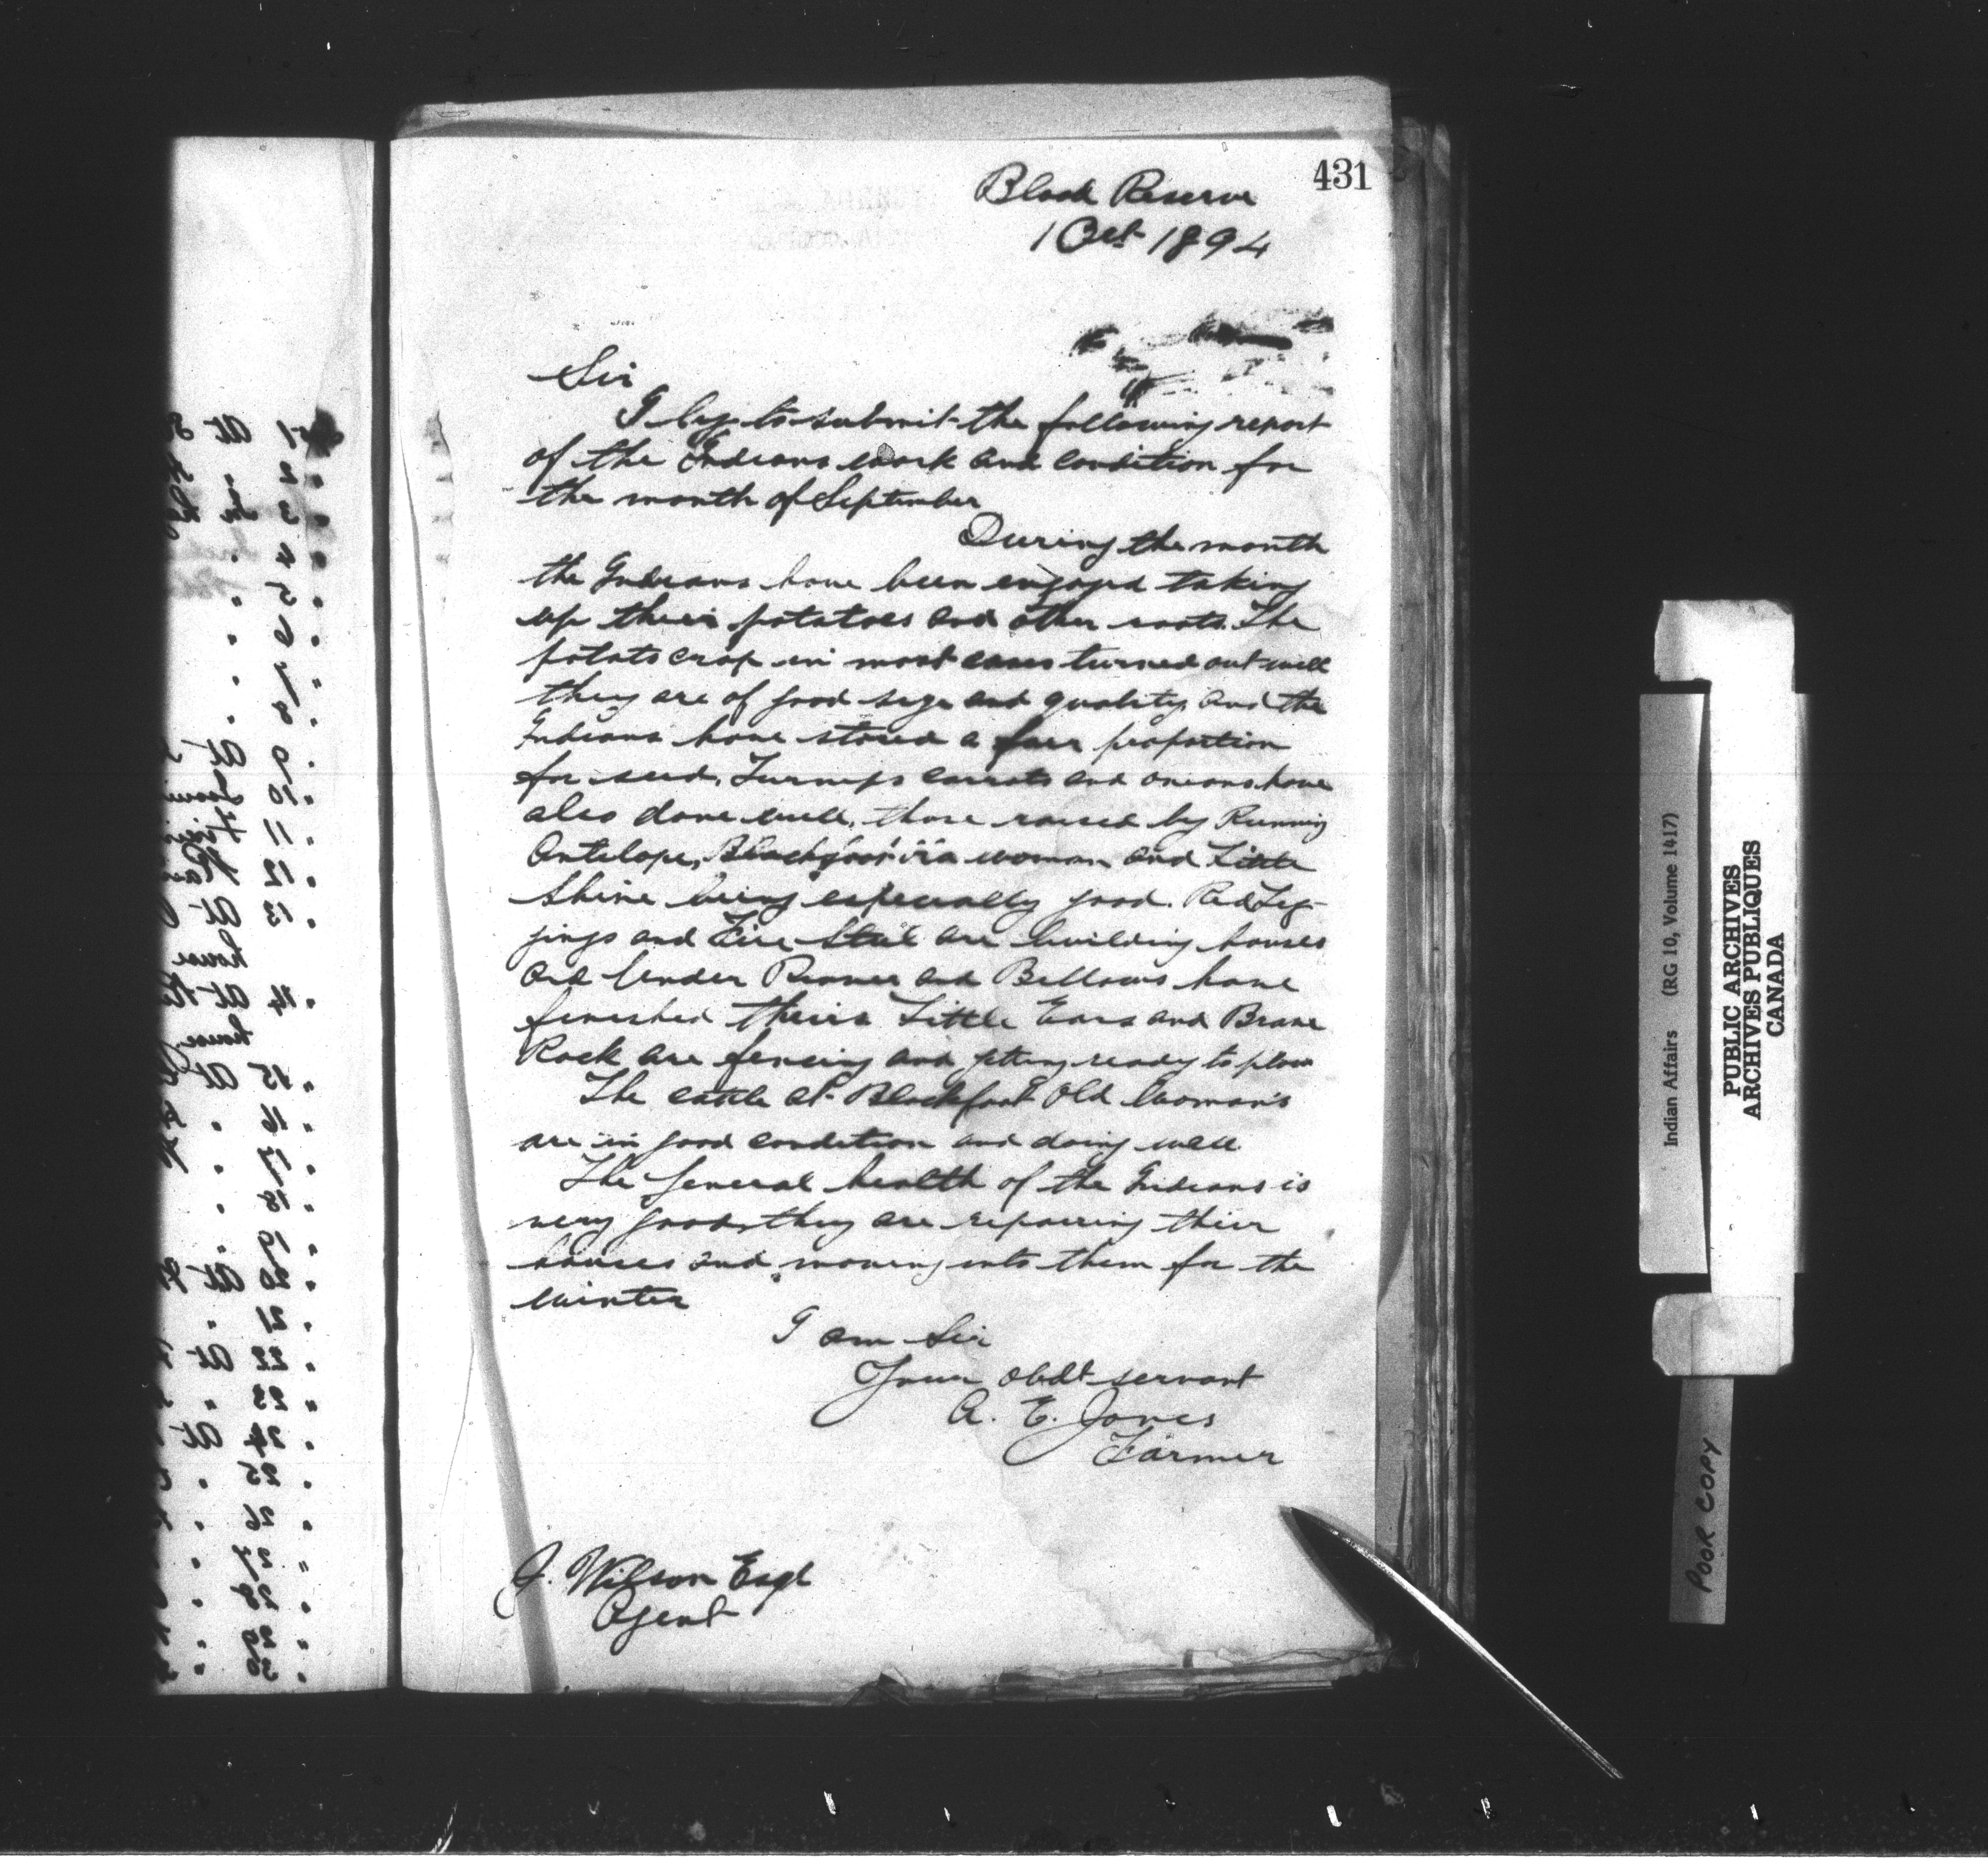 431
Blood Reserve
1 Oct 1894
Sir
I beg to submit the following report
of the Indians work and condition for
the month of September
During the month
the Indians have been engaged taking
up their potatoes and other roots. The
potato crop in most cases turned out well
they are of good size and quality and the
Indians have stored a fair proportion
for seed, Turnips carrots and onions have
also done well, those raised by Running
Antelope, Blackfoot woman and Little
Shine being especially good. Red Leg-
gings and Fire Steel are building houses
and Under and Bellows have
finished theirs Little Ears and Brave
Rock are fencing and getting ready to plow
The cattle at Blackfoot Old Woman's
are in good condition and doing well.
The general health of the Indians is
very good, they are repairing their
houses and moving into them for the
winter
I am Sir
Your obdt servant
A. E. Jones
Farmer
J. Wilson Esq
Agent
1 At
2
3
4
5
6
7
8
9 At
10
11
12
13 At
house
14 At
house
15 At
16
17
18
19
20 At
21
22 At
23
24 At
25
26
27
28
29
30
Indian Affairs (RG 10, Volume 1417)
PUBLIC ARCHIVES
ARCHIVES PUBLIQUES
CANADA
POOR COPY